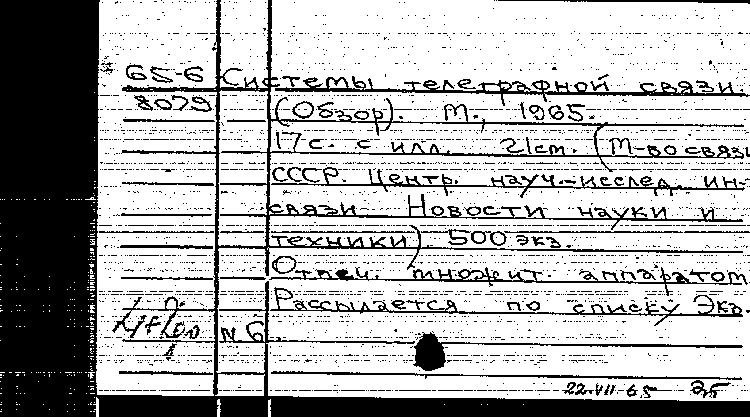 65-6 Системы телеграфной связи.
8079 (Обзор). М., 1965.
17 с. с илл. 21 cm. (М-во связи
СССР. Центр. науч.-исслед. ин-
связи. Новости науки и
техники) 500 экз.
Отпеч. множит. аппаратом
Рассылается по списку Экз.
N 6.
22.VII 65